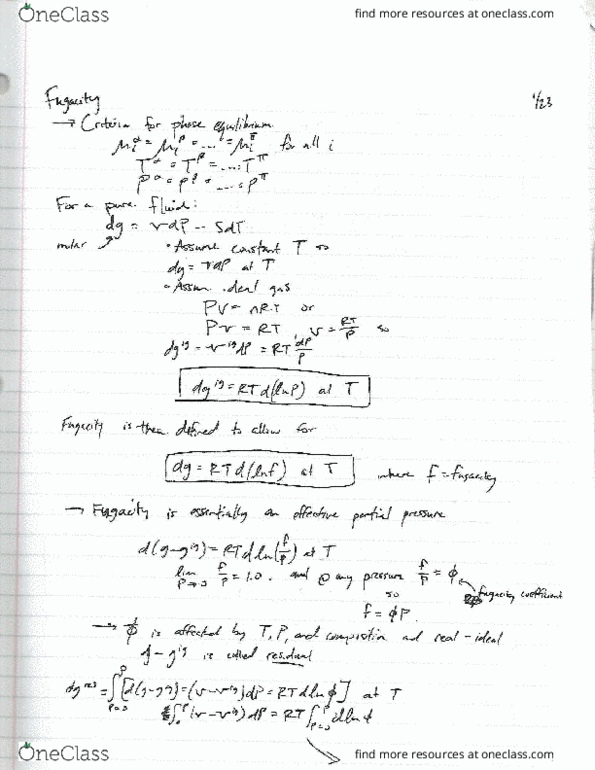 OneClass
find more resources at oneclass.com
Fugacity 1/23
→ Criteria for phase equilibrium
μᵢ^α = μᵢ^β = .... = μᵢ^π for all i
T^α = T^β = .... = T^π
P^α = P^β = .... = P^π
For a pure fluid:
dg = vdP - SdT
molar
• Assume constant T so
dg = vdP at T
• Assume ideal gas
PV = nRT or
Pv = RT v = RT/P so
dg^ig = v^ig dP = RT dP/P
dg^ig = RT d(lnP) at T
Fugacity is then defined to allow for
dg = RT d(lnf) at T where f = fugacity
→ Fugacity is essentially an effective partial pressure
d(g-g^ig) = RT d ln(f/P) at T
lim P→0 f/P = 1.0. and @ any pressure f/P = ϕ
fugacity coefficient
so
f = ϕP.
→ ϕ is affected by T, P, and composition and real-ideal
g - g^ig is called residual
dg^res = ∫_{P=0}^{P} [d(g-g^ig) = (v-v^ig)dP = RT d ln ϕ] at T
∫_0^P (v-v^ig)dP = RT ∫_{P=0}^P d ln ϕ
OneClass
find more resources at oneclass.com